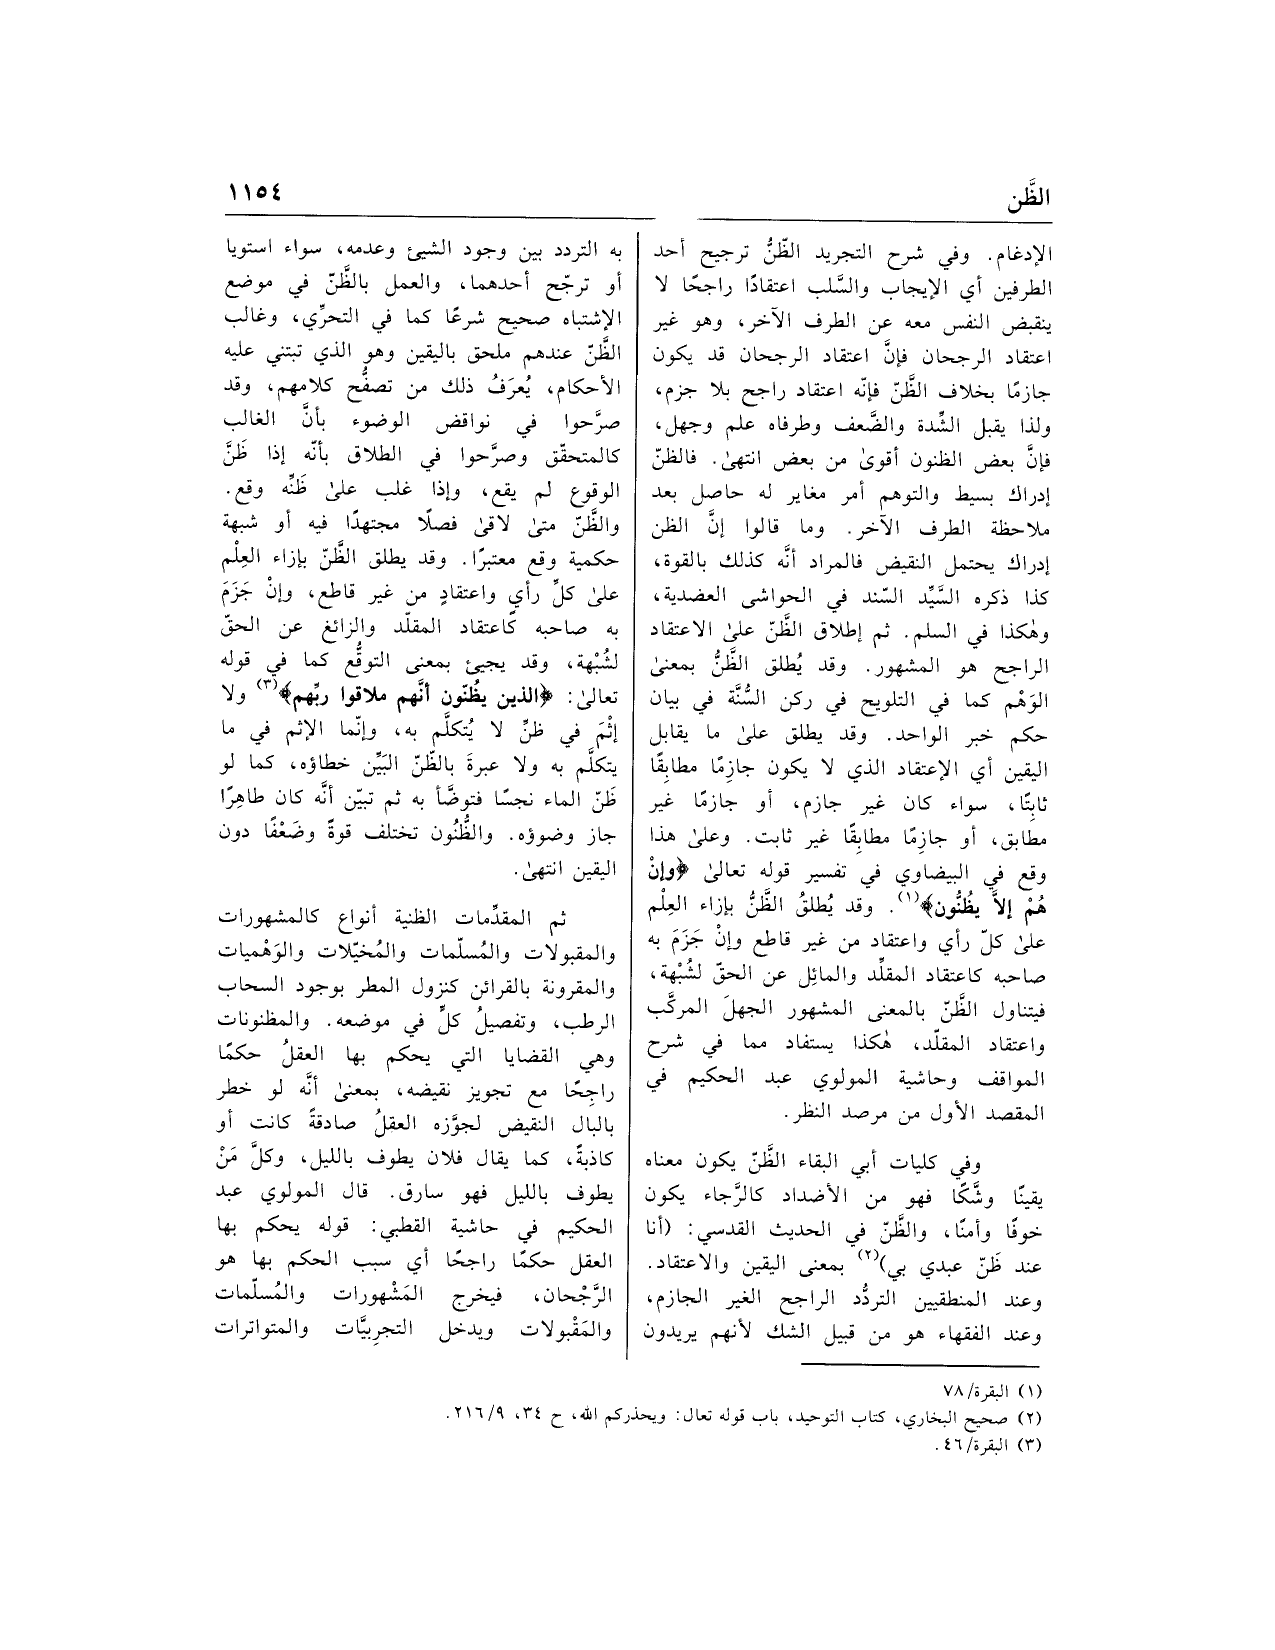 الظَّن
١١٥٤
الإدغام. وفي شرح التجريد الظّنُّ ترجيح أحد
الطرفين أي الإيجاب والسَّلب اعتقادًا راجحًا لا
ينقبض النفس معه عن الطرف الآخر، وهو غير
اعتقاد الرجحان فإنَّ اعتقاد الرجحان قد يكون
جازمًا بخلاف الظَّنّ فإنّه اعتقاد راجح بلا جزم،
ولذا يقبل الشِّدة والضَّعف وطرفاه علم وجهل،
فإنَّ بعض الظنون أقوىٰ من بعض انتهىٰ. فالظنّ
إدراك بسيط والتوهم أمر مغاير له حاصل بعد
ملاحظة الطرف الآخر. وما قالوا إنَّ الظن
إدراك يحتمل النقيض فالمراد أنَّه كذلك بالقوة،
كذا ذكره السَّيِّد السّند في الحواشي العضدية،
وهٰكذا في السلم. ثم إطلاق الظَّنّ علىٰ الاعتقاد
الراجح هو المشهور. وقد يُطلق الظَّنُّ بمعنىٰ
الوَهْم كما في التلويح في ركن السُّنَّة في بيان
حكم خبر الواحد. وقد يطلق علىٰ ما يقابل
اليقين أي الإعتقاد الذي لا يكون جازِمًا مطابِقًا
ثابِتًا، سواء كان غير جازم، أو جازمًا غير
مطابق، أو جازِمًا مطابِقًا غير ثابت. وعلىٰ هذا
وقع في البيضاوي في تفسير قوله تعالىٰ ﴿وإنْ
هُمْ إلاَّ يظُنُّون﴾(١). وقد يُطلقُ الظَّنُّ بإزاء العِلْم
علىٰ كلّ رأي واعتقاد من غير قاطع وإنْ جَزَمَ به
صاحبه كاعتقاد المقلِّد والمائِل عن الحقّ لشُبْهة،
فيتناول الظَّنّ بالمعنى المشهور الجهلَ المركَّب
واعتقاد المقلّد، هٰكذا يستفاد مما في شرح
المواقف وحاشية المولوي عبد الحكيم في
المقصد الأول من مرصد النظر.
وفي كليات أبي البقاء الظَّنّ يكون معناه
يقينًا وشَّكًا فهو من الأضداد كالرَّجاء يكون
خوفًا وأمنًا، والظَّنّ في الحديث القدسي: (أنا
عند ظَنّ عبدي بي)(٢) بمعنى اليقين والاعتقاد.
وعند المنطقيين التردُّد الراجح الغير الجازم،
وعند الفقهاء هو من قبيل الشك لأنهم يريدون
به التردد بين وجود الشيئ وعدمه، سواء استويا
أو ترجّح أحدهما، والعمل بالظَّنّ في موضع
الإشتباه صحيح شرعًا كما في التحرِّي، وغالب
الظَّنّ عندهم ملحق باليقين وهو الذي تبتني عليه
الأحكام، يُعرَفُ ذلك من تصفُّح كلامهم، وقد
صرَّحوا في نواقض الوضوء بأنَّ الغالب
كالمتحقّق وصرَّحوا في الطلاق بأنّه إذا ظَنَّ
الوقوع لم يقع، وإذا غلب علىٰ ظَنِّه وقع.
والظَّنّ متىٰ لاقىٰ فصلًا مجتهدًا فيه أو شبهة
حكمية وقع معتبرًا. وقد يطلق الظَّنّ بإزاء العِلْم
علىٰ كلِّ رأي واعتقادٍ من غير قاطع، وإنْ جَزَمَ
به صاحبه كاعتقاد المقلّد والزائغ عن الحقّ
لشُبْهة، وقد يجيئ بمعنى التوقُّع كما في قوله
تعالىٰ: ﴿الذين يظُنّون أنَّهم ملاقوا ربِّهم﴾(٣) ولا
إثْمَ في ظنٍّ لا يُتكلَّم به، وإنّما الإثم في ما
يتكلَّم به ولا عبرةَ بالظّنّ البَيِّن خطاؤه، كما لو
ظَنّ الماء نجسًا فتوضَّأ به ثم تبيّن أنَّه كان طاهِرًا
جاز وضوؤه. والظُّنُون تختلف قوةً وضَعْفًا دون
اليقين انتهىٰ.
ثم المقدِّمات الظنية أنواع كالمشهورات
والمقبولات والمُسلّمات والمُخيّلات والوَهْميات
والمقرونة بالقرائن كنزول المطر بوجود السحاب
الرطب، وتفصيلُ كلٍّ في موضعه. والمظنونات
وهي القضايا التي يحكم بها العقلُ حكمًا
راجِحًا مع تجويز نقيضه، بمعنىٰ أنَّه لو خطر
بالبال النقيض لجوَّزه العقلُ صادقةً كانت أو
كاذبةً، كما يقال فلان يطوف بالليل، وكلَّ مَنْ
يطوف بالليل فهو سارق. قال المولوي عبد
الحكيم في حاشية القطبي: قوله يحكم بها
العقل حكمًا راجحًا أي سبب الحكم بها هو
الرَّجْحان، فيخرج المَشْهورات والمُسلّمات
والمَقْبولات ويدخل التجرِبيَّات والمتواترات
(١) البقرة/٧٨
(٢) صحيح البخاري، كتاب التوحيد، باب قوله تعال: ويحذركم الله، ح ٣٤، ٢١٦/٩.
(٣) البقرة/٤٦.